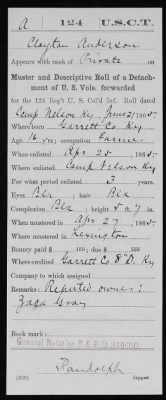 A | 124 | U.S.C.T.
Clayton Anderson
Appears with rank of Private on
Muster and Descriptive Roll of a Detach-
ment of U. S. Vols. forwarded
for the 124 Reg't U. S. Col'd Inf. Roll dated
Camp Nelson Ky, June 2, 1865.
Where born Garrett Co Ky
Age 16 y'rs; occupation Farmer
When enlisted Apr 25, 1865.
Where enlisted Camp Nelson Ky
For what period enlisted 3 years.
Eyes Bla; hair Bla
Complexion Bla; height 5 ft. 7 in.
When mustered in Apr 27, 1865.
Where mustered in Lexington
Bounty paid $ 100; due $ 100
Where credited Garrett Co 8" D. Ky
Company to which assigned
Remarks: Reputed owner:
Gray
Book mark:
General Notation R & P D
Randolph
(339) Copyist.